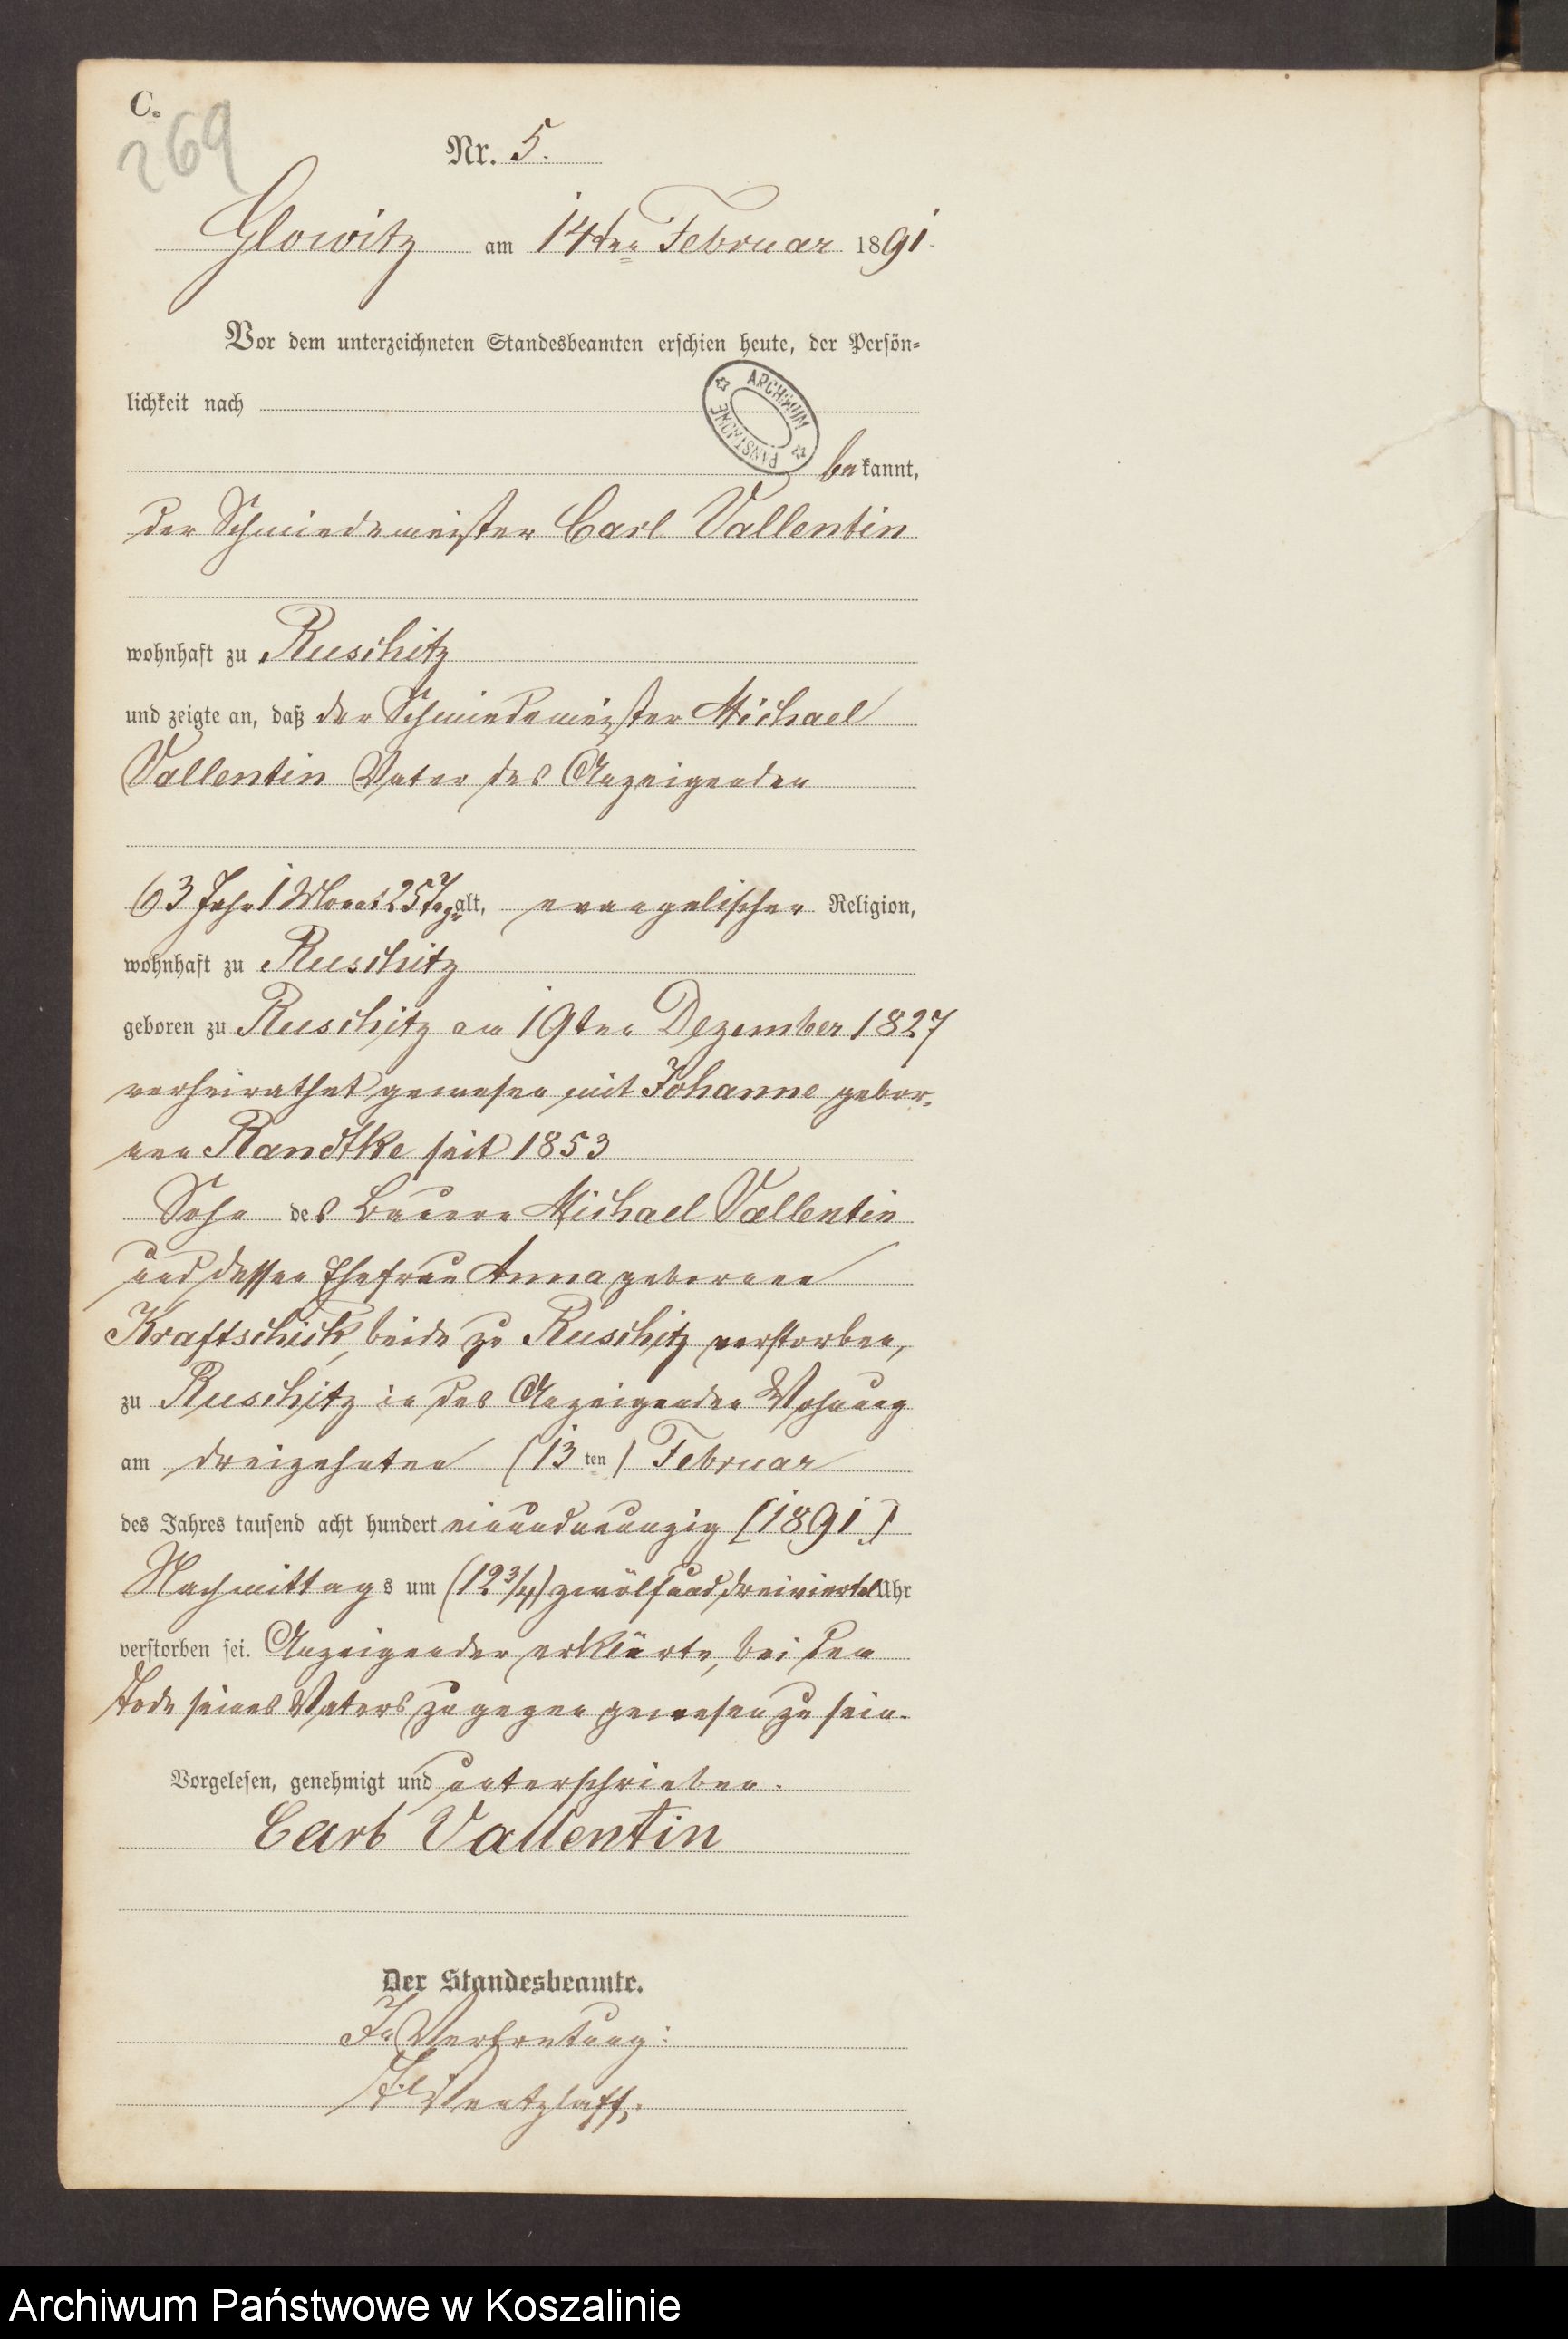 C.
269
Nr. 5.
Glowitz am 14ten Februar 1891.
Vor dem unterzeichneten Standesbeamten erschien heute, der Persön-
lichkeit nach
ARCHIWUM PAŃSTWOWE
bekannt,
der Schmiedemeister Carl Vallentin
wohnhaft zu Ruschitz
und zeigte an, daß der Schmiedemeister Michael
Vallentin Vater des Anzeigenden
63 Jahr 1 Monat 25 Tage alt, evangelischer Religion,
wohnhaft zu Ruschitz
geboren zu Ruschitz am 19ten Dezember 1827
verheirathet gewesen mit Johanne gebor-
nen Randtke seit 1853
Sohn des Bauern Michael Vallentin
und dessen Ehefrau Anna geborenen
Kraftschick, beide zu Ruschitz verstorben,
zu Ruschitz in des Anzeigenden Wohnung
am dreizehnten (13 ten) Februar
des Jahres tausend acht hundert einundneunzig (1891)
Nachmittags um (12 3/4) zwölfund dreiviertel Uhr
verstorben sei. Anzeigender erklärte, bei dem
Tode seines Vaters zugegen gewesen zu sein.
Vorgelesen, genehmigt und unterschrieben.
Carl Vallentin
Der Standesbeamte.
In Vertretung:
Ventzlaff.
Archiwum Państwowe w Koszalinie